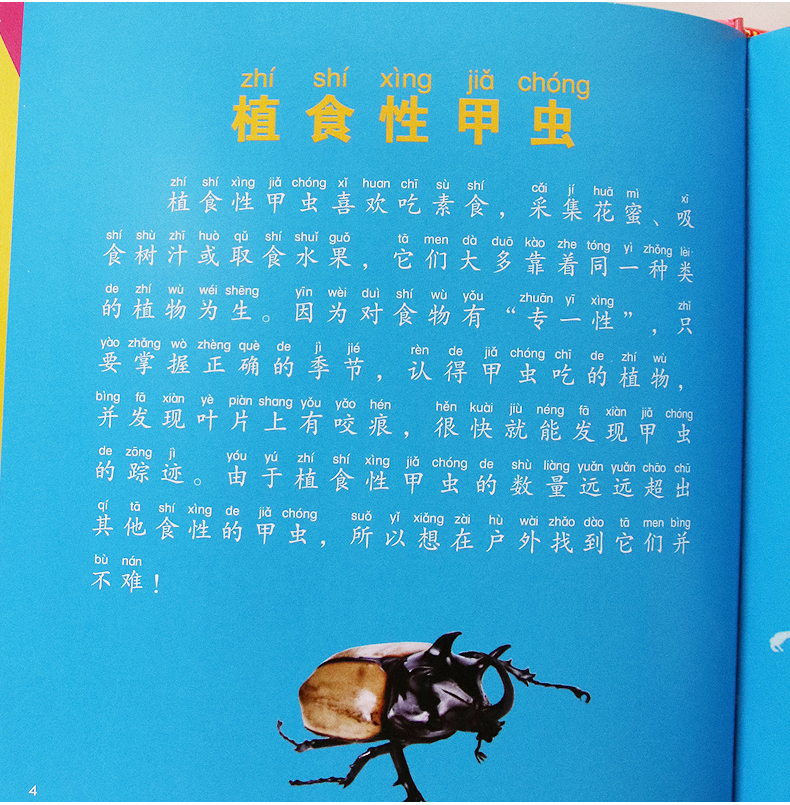 zhí shí xìng jiǎ chóng
植食性甲虫
zhí shí xìng jiǎ chóng xǐ huan chī sù shí cǎi jí huā mì xī
植食性甲虫喜欢吃素食，采集花蜜、吸
shí shù zhī huò qǔ shí shuǐ guǒ tā men dà duō kào zhe tóng yì zhǒng lèi
食树汁或取食水果，它们大多靠着同一种类
de zhí wù wéi shēng yīn wèi duì shí wù yǒu zhuān yī xìng zhǐ
的植物为生。因为对食物有“专一性”，只
yào zhǎng wò zhèng què de jì jié rèn de jiǎ chóng chī de zhí wù
要掌握正确的季节，认得甲虫吃的植物，
bìng fā xiàn yè piàn shang yǒu yǎo hén hěn kuài jiù néng fā xiàn jiǎ chóng
并发现叶片上有咬痕，很快就能发现甲虫
de zōng jì yóu yú zhí shí xìng jiǎ chóng de shù liàng yuǎn yuǎn chāo chū
的踪迹。由于植食性甲虫的数量远远超出
qí tā shí xìng de jiǎ chóng suǒ yǐ xiǎng zài hù wài zhǎo dào tā men bìng
其他食性的甲虫，所以想在户外找到它们并
bù nán
不难！
4